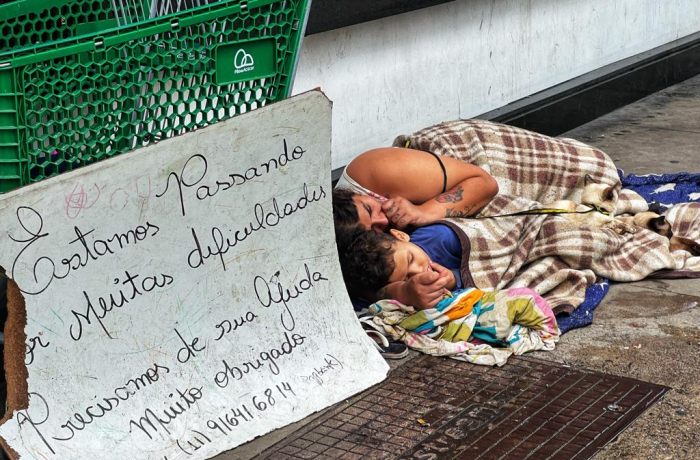 Estamos Passando
or Muitas dificuldades
Precisamos de sua Ajuda
Muito obrigado
(11) 9164168 14